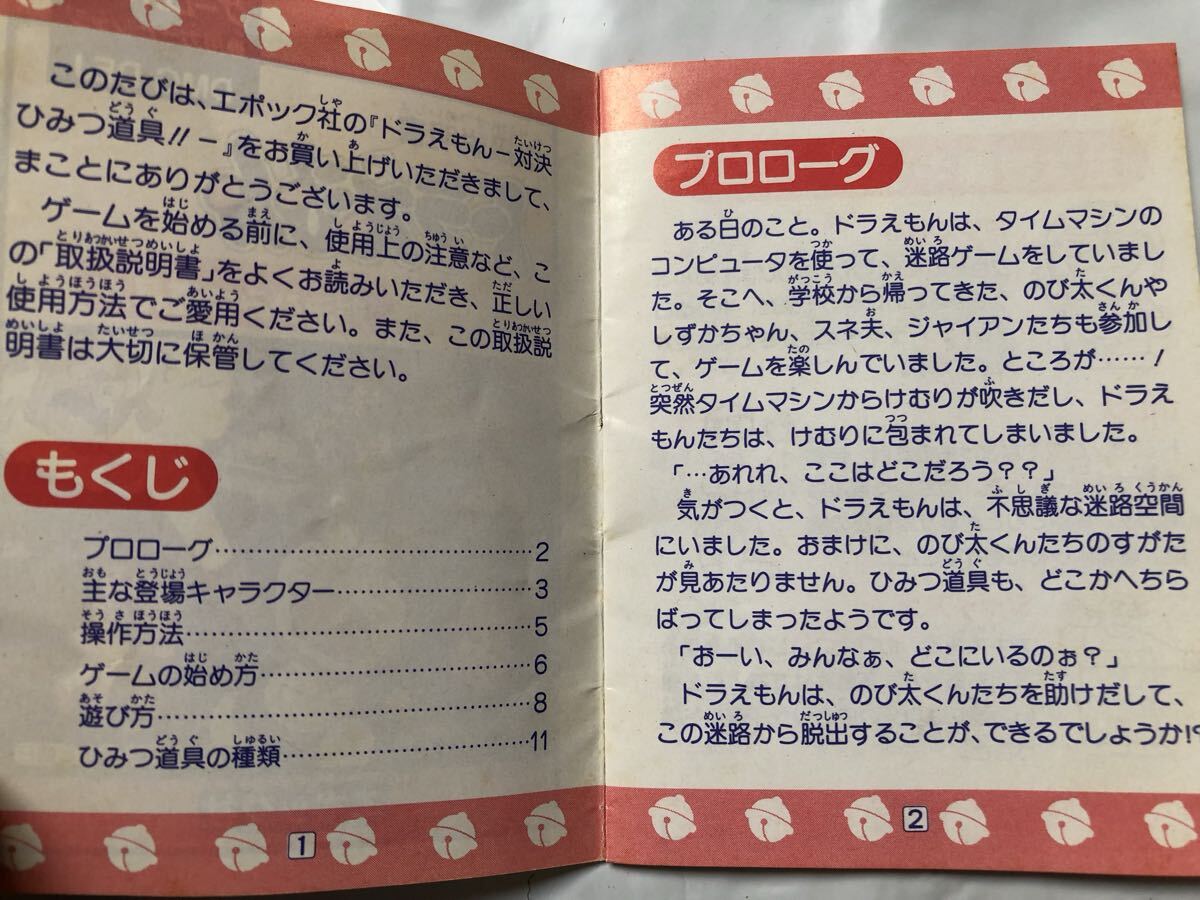 このたびは、エポック社の『ドラえもん－対決
ひみつ道具!!－』をお買い上げいただきまして、
まことにありがとうございます。
ゲームを始める前に、使用上の注意など、こ
の「取扱説明書」をよくお読みいただき、正しい
使用方法でご愛用ください。また、この取扱説
明書は大切に保管してください。
もくじ
プロローグ……………………………2
主な登場キャラクター…………………3
操作方法………………………………5
ゲームの始め方…………………………6
遊び方…………………………………8
ひみつ道具の種類………………………11
1
プロローグ
ある日のこと。ドラえもんは、タイムマシンの
コンピュータを使って、迷路ゲームをしていまし
た。そこへ、学校から帰ってきた、のび太くんや
しずかちゃん、スネ夫、ジャイアンたちも参加し
て、ゲームを楽しんでいました。ところが……！
突然タイムマシンからけむりが吹きだし、ドラえ
もんたちは、けむりに包まれてしまいました。
「…あれれ、ここはどこだろう？？」
気がつくと、ドラえもんは、不思議な迷路空間
にいました。おまけに、のび太くんたちのすがた
が見あたりません。ひみつ道具も、どこかへちら
ばってしまったようです。
「おーい、みんなぁ、どこにいるのぉ？」
ドラえもんは、のび太くんたちを助けだして、
この迷路から脱出することが、できるでしょうか!?
2